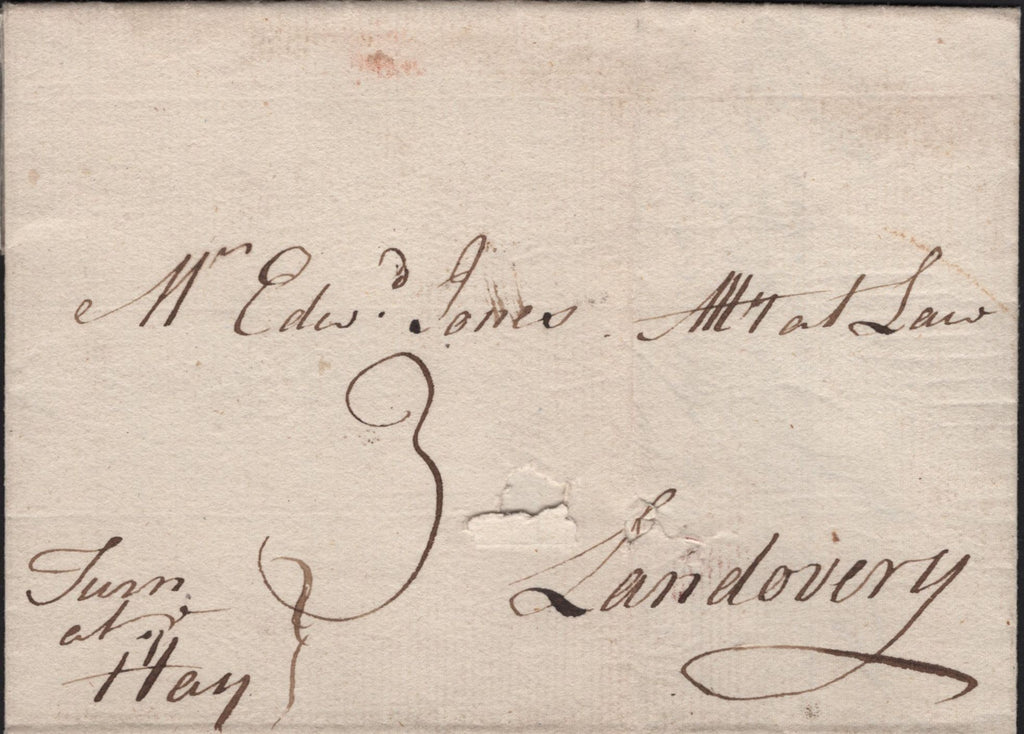 Mr Edwd. Jones Atty at Law
3
Landovery
Turn
at ye
Hay